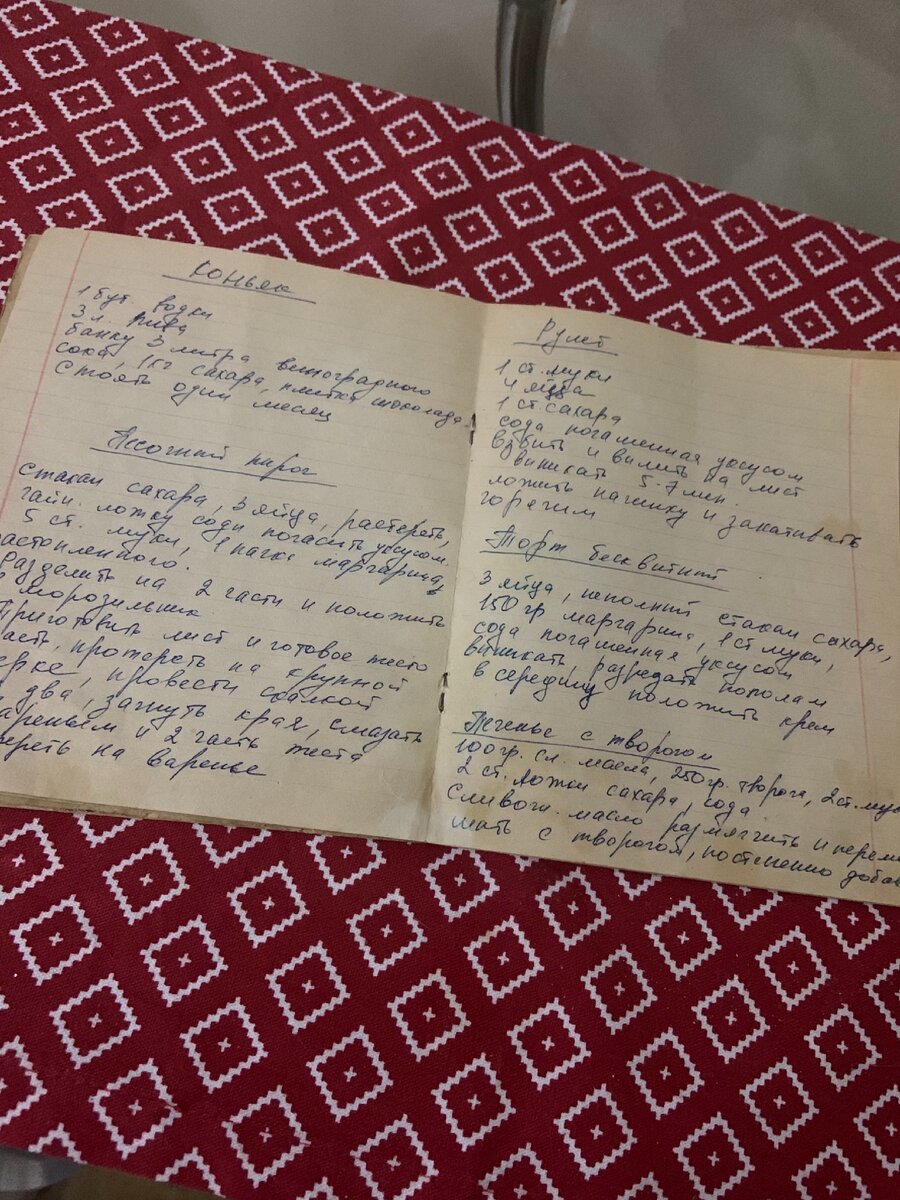 коньяк
1 бут водки
3 л. пива
банку 3 литра виноградного
сока, 1кг сахара, плитка шоколада
Стоять один месяц
Песочный пирог
Стакан сахара, 3 яйца, растереть,
чайн. ложку соды погасить уксусом.
5 ст. муки, 1 пачка маргарина,
астопленного.
Разделить на 2 части и положить
морозильник
Приготовить лист и готовое тесто
асть, протереть на крупной
ерке, провести скалкой
два, загнуть края, смазать
ареньем и 2 часть теста
ереть на варенье
Рулет
1 ст. муки
4 яйца
1 ст. сахара
сода погашенная уксусом
взбить и вилить на лист
выпекать 5-7 мин.
ложить начинку и закативать
горячим
Торт бесквитний
3 яйца, неполний стакан сахара,
150 гр маргарина, 1 ст муки,
сода погашенная уксусом
выпекать, разредать пополам
в середину положить крем
Печенье с творогом
100 гр. сл. масла, 250 гр. творога, 2 ст. му
2 ст. ложки сахара, сода
Сливочн. масло размягчить и переме
шать с творогом, постепенно доба